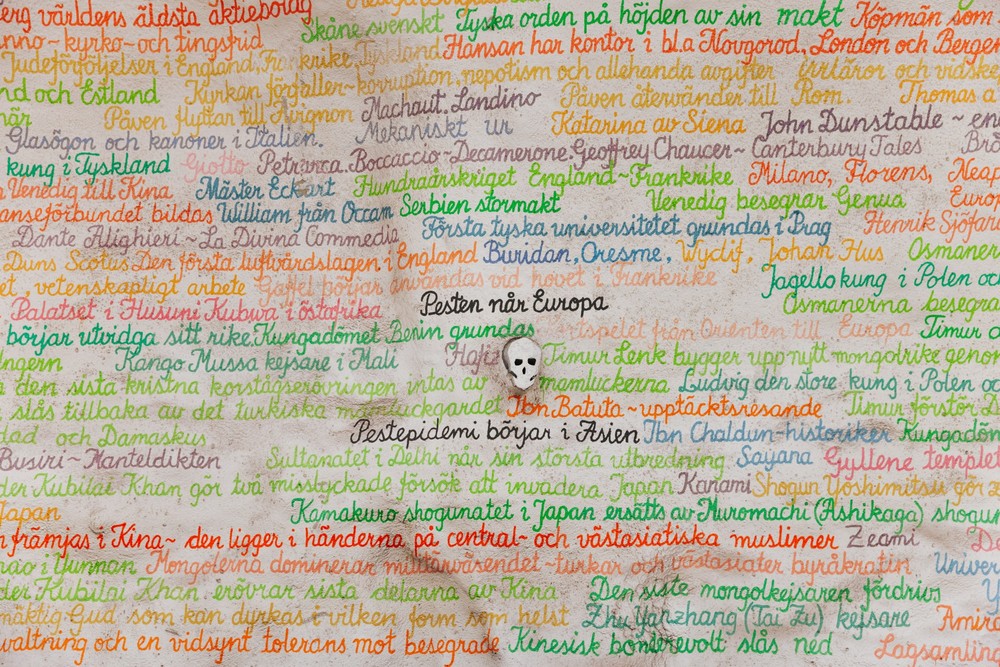 erg världens äldsta aktiebolag Skåne svenskt Tyska orden på höjden av sin makt Köpmän som
nno~kyrko~och tingsfrid Hansan har kontor i bl.a Novgorod, London och Bergen
Judeförföljelser i England, Frankrike, Tyskland
Kyrkan förfaller~korruption, nepotism och allehanda avgifter Irrläror och vidske
nd och Estland Machaut. Landino Påven återvänder till Rom. Thomas a
när Påven flyttar till Avignon Mekaniskt ur Katarina av Siena John Dunstable ~ en
Glasögon och kanoner i Italien.
kung i Tyskland Giotto Petrarca. Boccaccio~Decamerone. Geoffrey Chaucer~Canterbury Tales Brö
Venedig till Kina Mäster Eckart Hundraårskriget England~Frankrike Milano, Florens, Neap
anseförbundet bildas William från Occam Serbien stormakt Venedig besegrar Genua Europ
Dante Alighieri~La Divina Commedia Första tyska universitetet grundas i Prag Henrik Sjöfar
Duns Scotus Den första luftvårdslagen i England Buridan, Oresme, Wyclif, Johan Hus Osmaner
et, vetenskapligt arbete Gaffel börjar användas vid hovet i Frankrike Jagello kung i Polen oc
Palatset i Husuni Kubwa i östafrika Pesten når Europa Osmanerna besegra
börjar utvidga sitt rike. Kungadömet Benin grundas rtspelet från Orienten till Europa Timur o
ngern Kango Mussa kejsare i Mali Hafiz Timur Lenk bygger upp nytt mongolrike genom
a den sista kristna korstågserövringen intas av mamluckerna Ludvig den store kung i Polen oc
slås tillbaka av det turkiska mamluckgardet Ibn Batuta~upptäcktsresande Timur förstör
dad och Damaskus Pestepidemi börjar i Asien Ibn Chaldun~historiker Kungadöm
Busiri~Manteldikten Sultanatet i Delhi når sin största utbredning Sayana Gyllene templet
der Kubilai Khan gör två misslyckade försök att invadera Japan Kanami Shogun Yoshimitsu gör
Japan Kamakuro shogunatet i Japan ersätts av Muromachi (Ashikaga) shogun
n främjas i Kina~ den ligger i händerna på central~ och västasiatiska muslimer Zeami
nao i Yunnan Mongolerna dominerar militärväsendet~turkar och västasiater byråkratin Univer
der Kubilai Khan erövrar sista delarna av Kina Den siste mongolkejsaren fördrivs
mäktig Gud som kan dyrkas i vilken form som helst Zhu Yanzhang (Tai Zu) kejsare Amira
valtning och en vidsynt tolerans mot besegrade Kinesisk bonderevolt slås ned Lagsamling